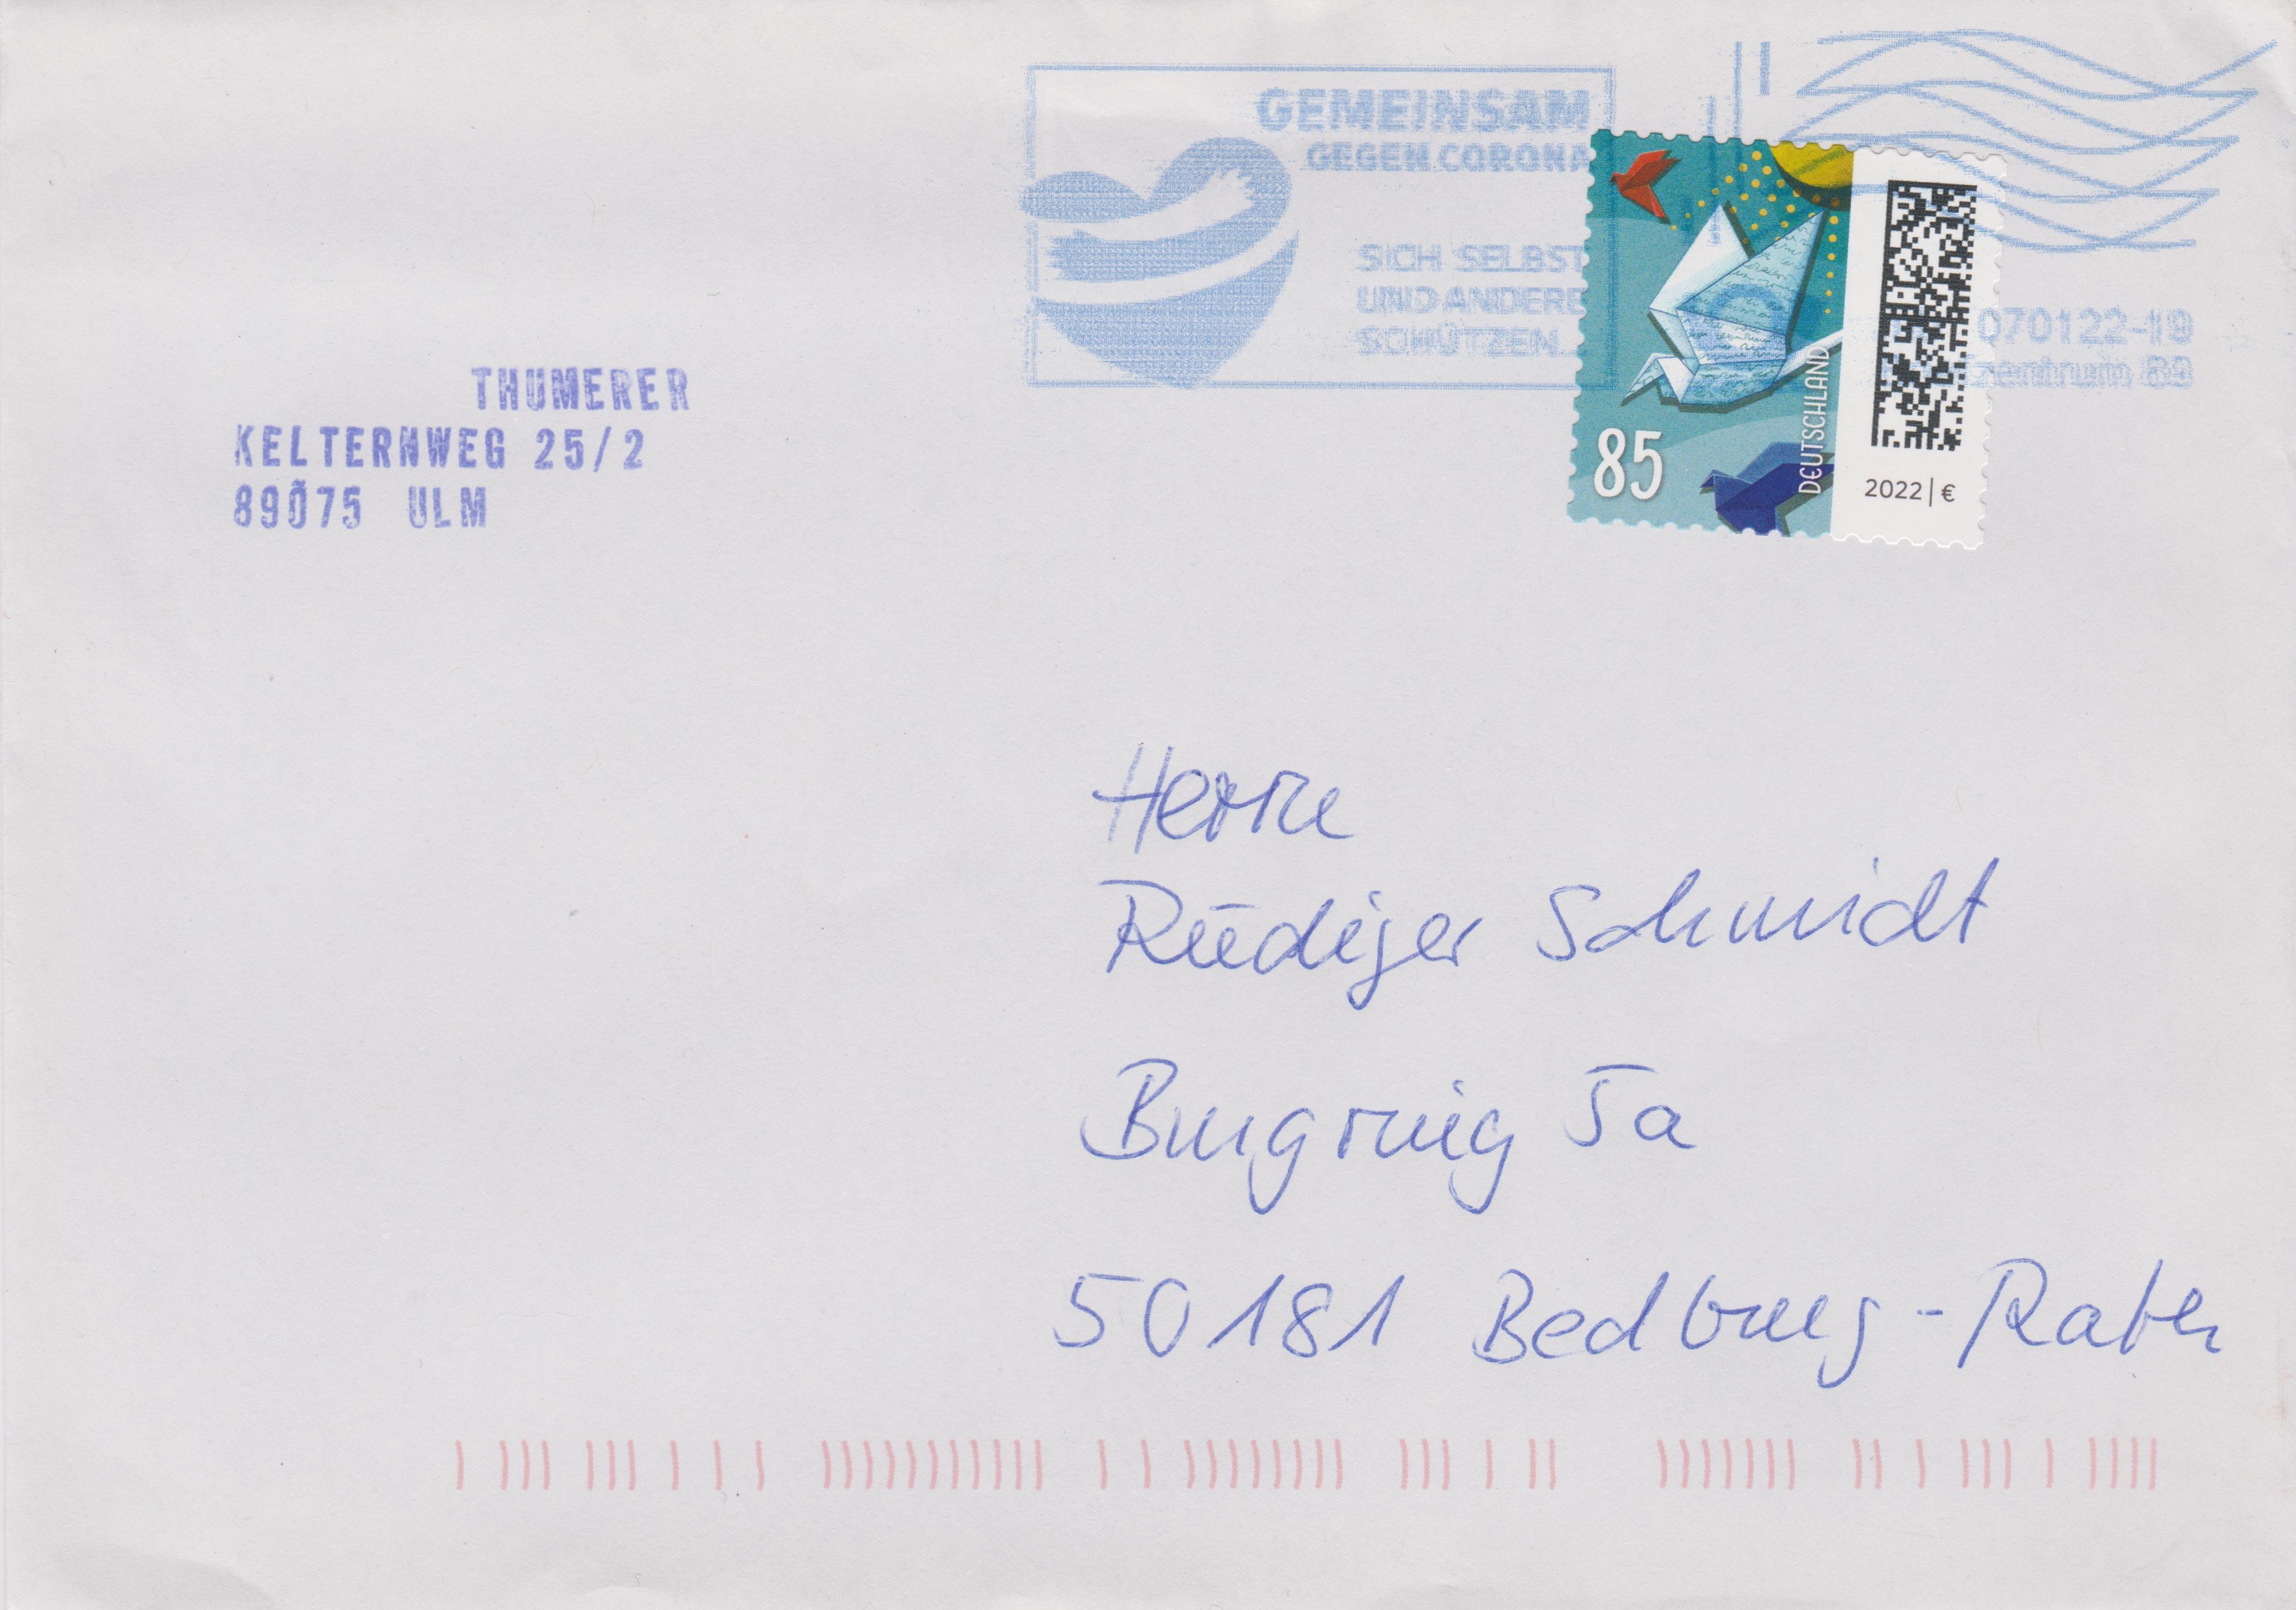 GEMEINSAM
GEGEN CORONA
SICH SELBST
UND ANDERE
SCHÜTZEN.
070122-19
zentrum 89
85
DEUTSCHLAND
2022 | €
THUMERER
KELTERNWEG 25/2
89075 ULM
Herrn
Rüdiger Schmidt
Burgring 5a
50181 Bedburg-Rath